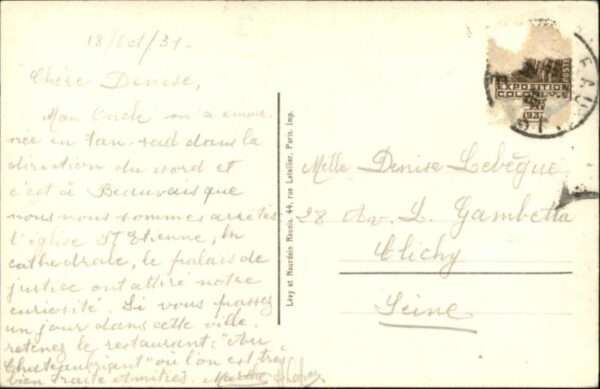 18/Oct/31.
Chère Denise,
Mon Oncle m'a emme-
née en tan-sad dans la
direction du nord et
c'est à Beauvais que
nous nous sommes arrêtés
l'église St Etienne, la
cathédrale, le palais de
justice ont attiré notre
curiosité. Si vous passez
un jour dans cette ville.
retenez le restaurant: "Au
" où l'on est très
bien traité
Lévy et Neurdein Réunis, 44, rue Letellier, Paris. Imp.
EXPOSITION
COLONIALE
1931
Melle Denise Lebègue
28 Av. L. Gambetta
Clichy
Seine